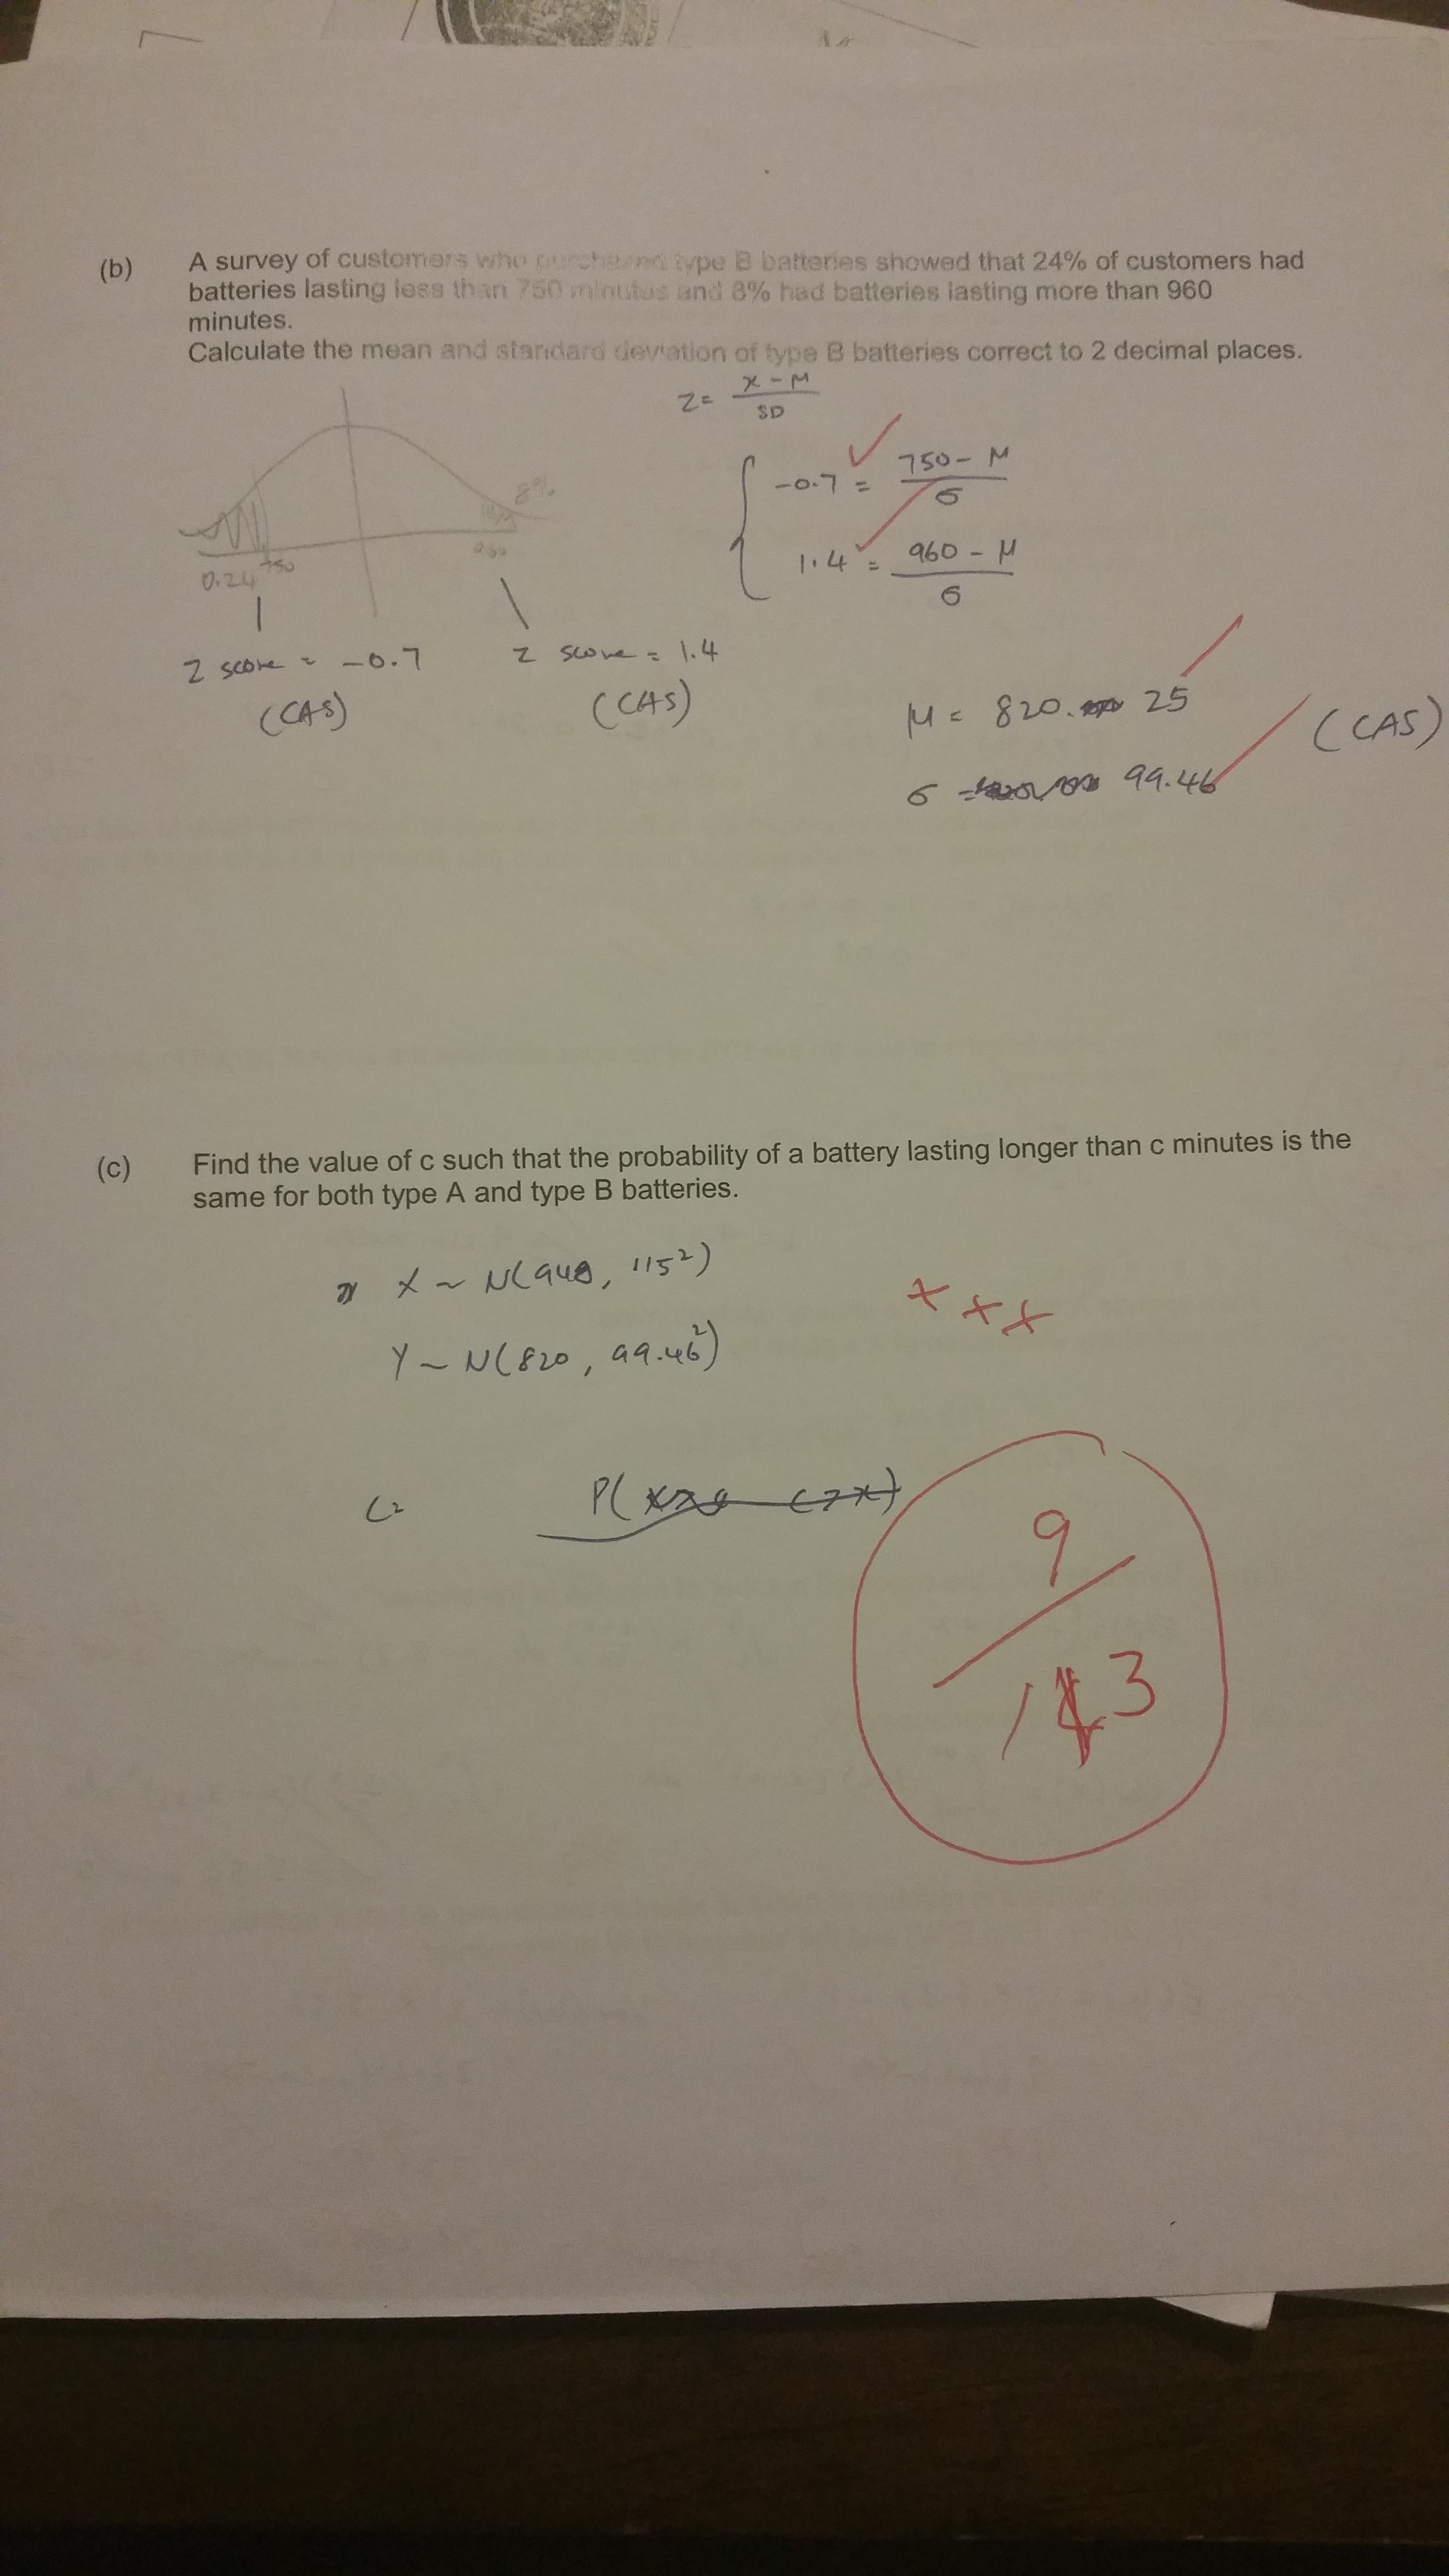 (b) A survey of customers who purchased type B batteries showed that 24% of customers had
batteries lasting less than 750 minutes and 8% had batteries lasting more than 960
minutes.
Calculate the mean and standard deviation of type B batteries correct to 2 decimal places.
Z = x - μ / SD
-0.7 = 750 - μ / σ
8%
1.4 = 960 - μ / σ
0.24 750 960
Z score = -0.7 Z score = 1.4
(CAS) (CAS)
μ = 820. 25 (CAS)
σ = 99.46
(c) Find the value of c such that the probability of a battery lasting longer than c minutes is the
same for both type A and type B batteries.
X ~ N(948, 115²)
Y ~ N(820, 99.46²)
x x x
C= P(
9
/
13